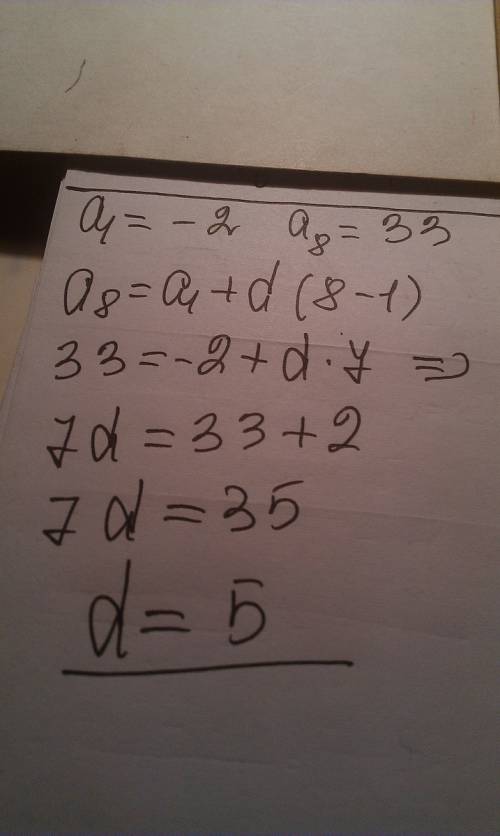 a₁ = -2 a₈ = 33
a₈ = a₁ + d (8 - 1)
33 = -2 + d · 7 =>
7d = 33 + 2
7d = 35
d = 5